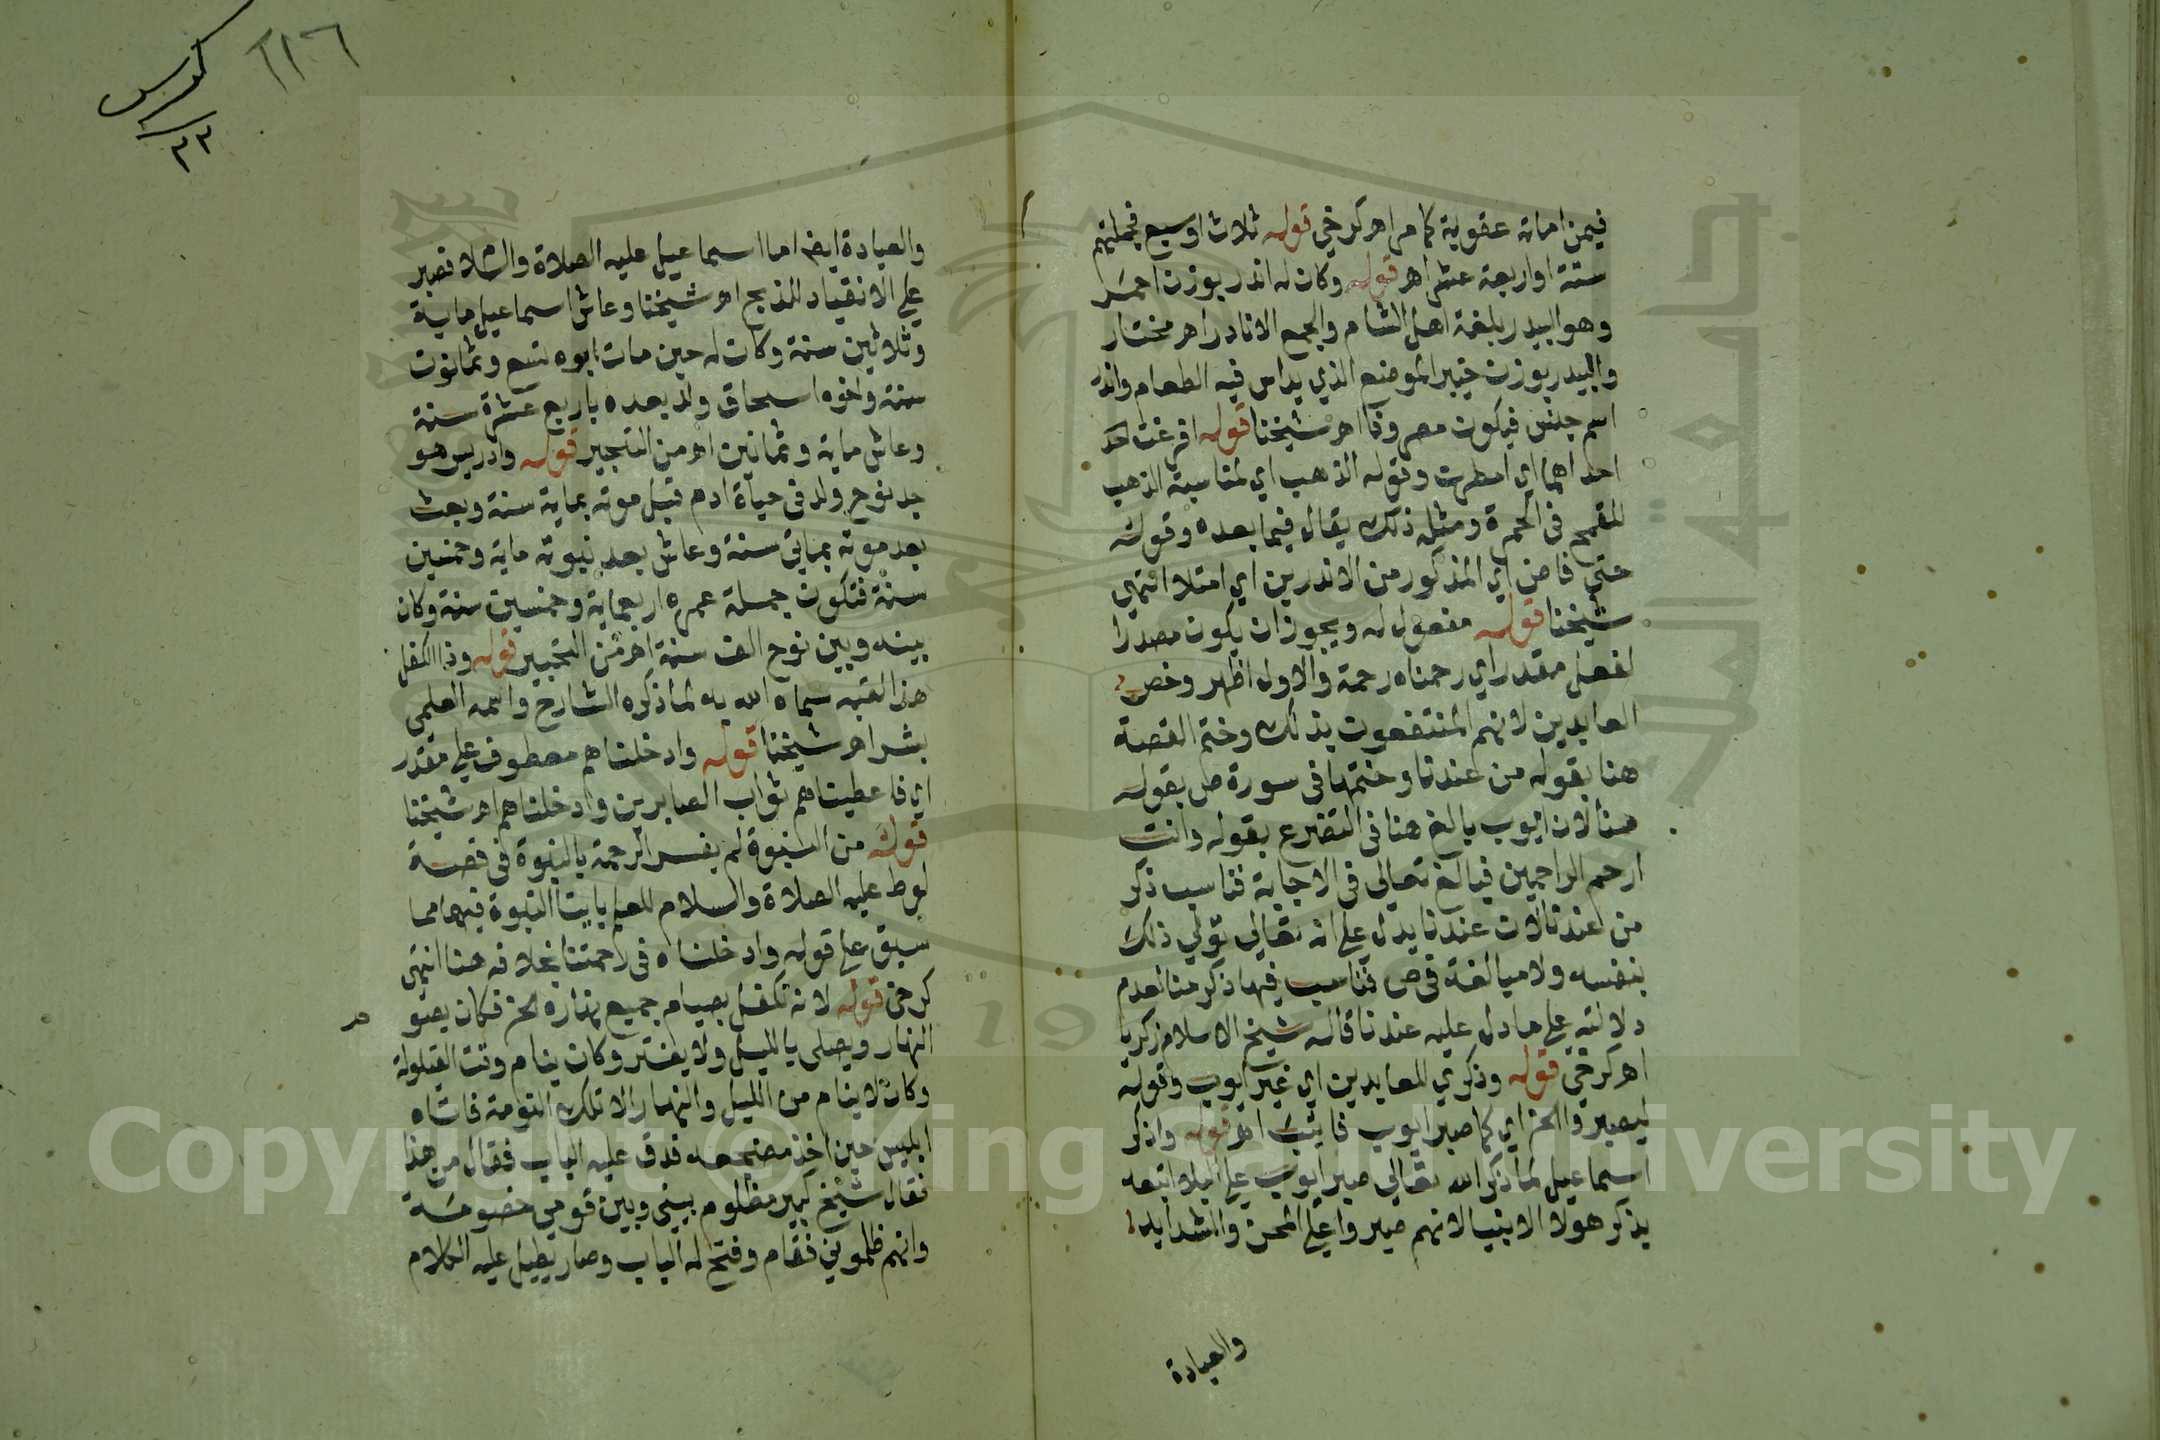 فيمن اماته عقوبة كما مر اهر كرخي قوله ثلاث او سبع فجملتهم
ستة او اربعة عشر اهر قوله وكان له اندر بوزن احمر
وهو البيدر بلغة اهل الشام والجمع الانادر اهر مختار
والبيدر بوزن خيبر الموضع الذي يداس فيه الطعام واندر
اسم جنس فيكون مصروفا اهر شيخنا قوله افرغت احد
احداهما اي امطرت وقوله الذهب اي لمناسبة الذهب
للقمح في الحمرة ومثل ذلك يقال فيما بعده وقوله
حتي فاض اي المذكور من الاندرين اي امتلا انتهي
شيخنا قوله مفعول له ويجوز ان يكون مصدرا
لفعل مقدر اي رحمناه رحمة والاول اظهر وخص
العابدين لانهم المنتفعون بذلك وختم القصة
هنا بقوله من عندنا وختمها في سورة ص بقوله
منا لان ايوب بالغ هنا في التضرع بقوله وانت
ارحم الراحمين فبالغ تعالي في الاجابة فناسب ذكر
من عندنا لان عندنا يدل علي انه تعالي تولي ذلك
بنفسه ولا مبالغة في ص فناسب فيها ذكر منا لعدم
دلالته علي ما دل عليه عندنا قاله شيخ الاسلام زكريا
اهر كرخي قوله وذكري للعابدين اي غير ايوب وقوله
ليصبروا الخ اي كما صبر ايوب فاثيب اهر قوله واذكر
اسماعيل لما ذكر الله تعالي صبر ايوب علي البلا اتبعه
بذكر هولا الانبيا لانهم صبروا علي المحن والشدايد
والعبادة
٢١٦
كراس
٢٢
والعبادة ايض اما اسماعيل عليه الصلاة والسلام فصبر
علي الانقياد للذبح اهر شيخنا وعاش اسماعيل ماية
وثلاثين سنة وكان له حين مات ابوه تسع وثمانون
سنة واخوه اسحاق ولد بعده باربع عشرة سنة
وعاش ماية وثمانين اهر من التحبير قوله وادريس هو
جد نوح ولد في حياة ادم قبل موته بماية سنة وبعث
بعد موته بمايتي سنة وعاش بعد نبوته ماية وخمسين
سنة فتكون جملة عمره اربعماية وخمسين سنة وكان
بينه وبين نوح الف سنة اهر من التحبير قوله وذا الكفل
هذا لقبه سماه الله به لما ذكره الشارح واسمه العلمي
بشر اهر شيخنا قوله وادخلناهم معطوف علي مقدر
اي فاعطيناهم ثواب الصابرين وادخلناهم اهر شيخنا
قوله من النبوة لم يفسر الرحمة بالنبوة في قصة
لوط عليه الصلاة والسلام للعلم باثبات النبوة فيها مما
سبق علي قوله وادخلناه في رحمتنا بخلافه هنا انتهي
كرخي قوله لانه تكفل بصيام جميع نهاره الخ فكان يصو م
النهار ويصلي بالليل ولا يفتر وكان ينام وقت القيلولة
وكان لا ينام من الليل والنهار الا تلك النومة فاتاه
ابليس حين اخذ مضجعه فدق عليه الباب فقال من هذا
فقال شيخ كبير مظلوم بيني وبين قومي خصومة
وانهم ظلموني فقام وفتح له الباب وصار يطيل عليه الكلام
Copyright © King Saud University